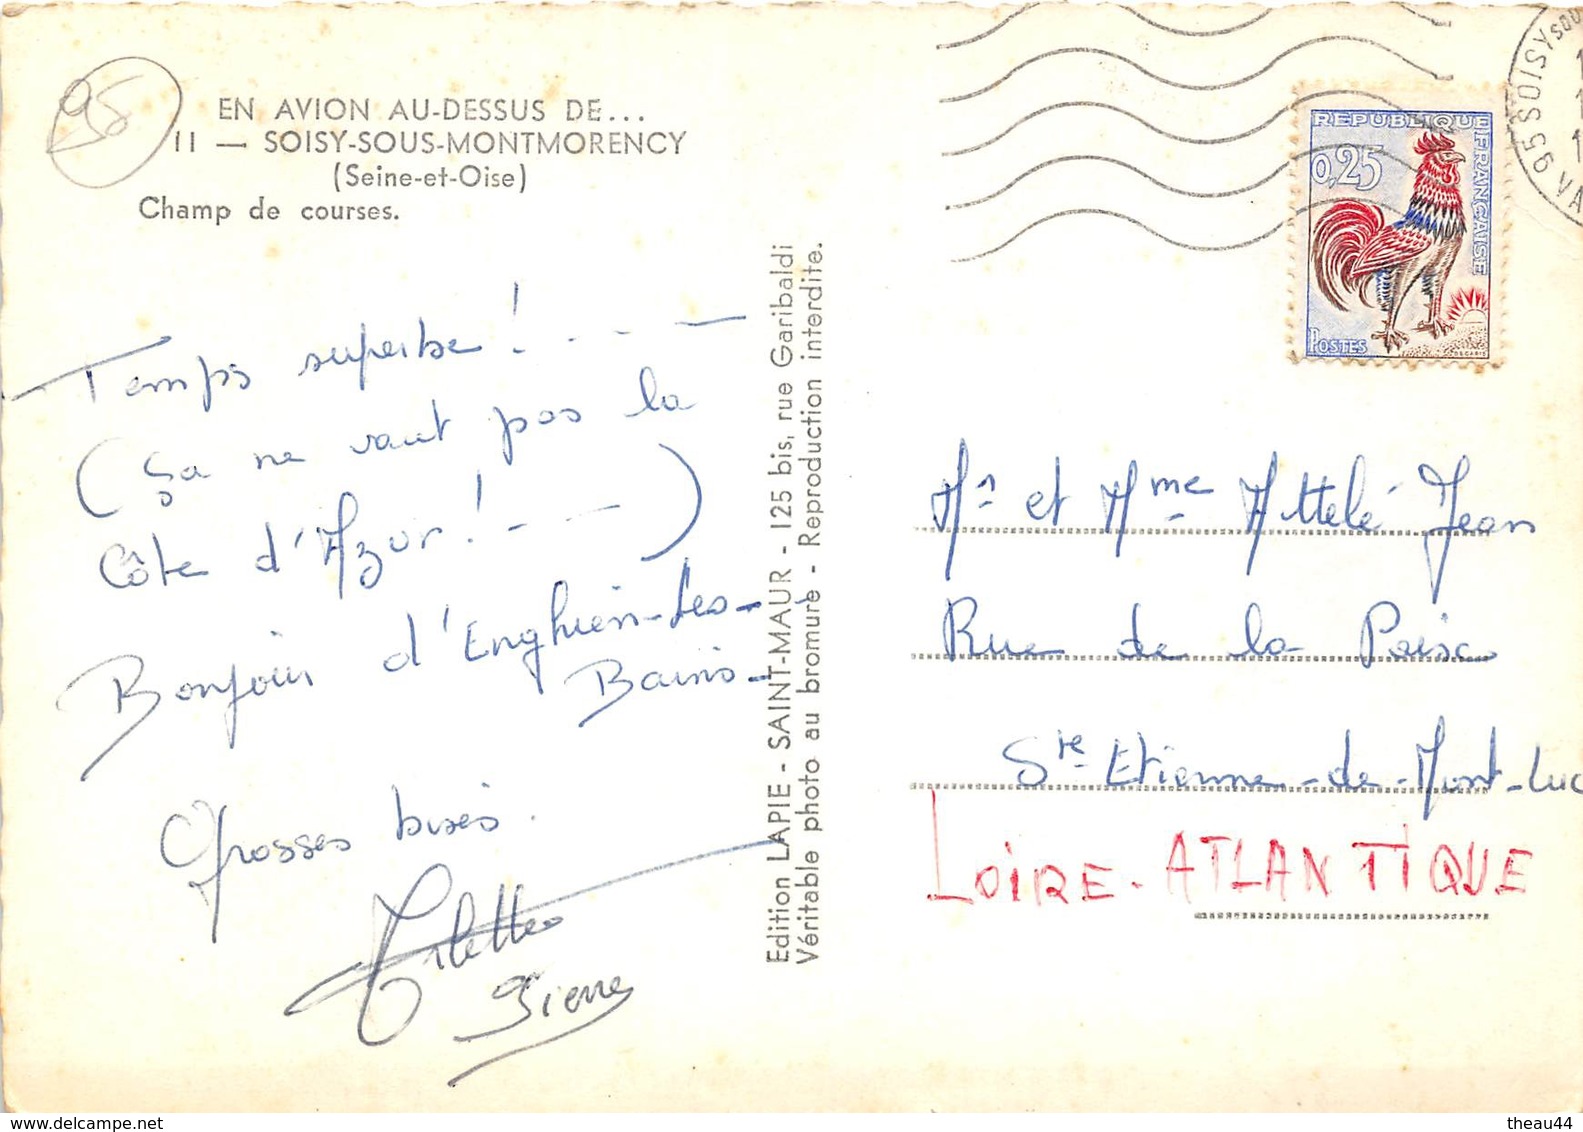 95
EN AVION AU-DESSUS DE...
11 — SOISY-SOUS-MONTMORENCY
(Seine-et-Oise)
Champ de courses.
Temps superbe ! - - -
(Ça ne vaut pas la
Côte d'Azur ! - - -)
Bonjour d'Enghien-les-
Bains -
Grosses bises.
Pierre
Edition LAPIE - SAINT-MAUR - 125 bis, rue Garibaldi
Véritable photo au bromure - Reproduction interdite.
95 SOISY SOU
VA
REPUBLIQUE FRANÇAISE
0,25
POSTES
DECARIS
Mr et Mme Attelé Jean
Rue de la Paix
Ste Etienne-de-Mont-Luc
LOIRE-ATLANTIQUE
theau44